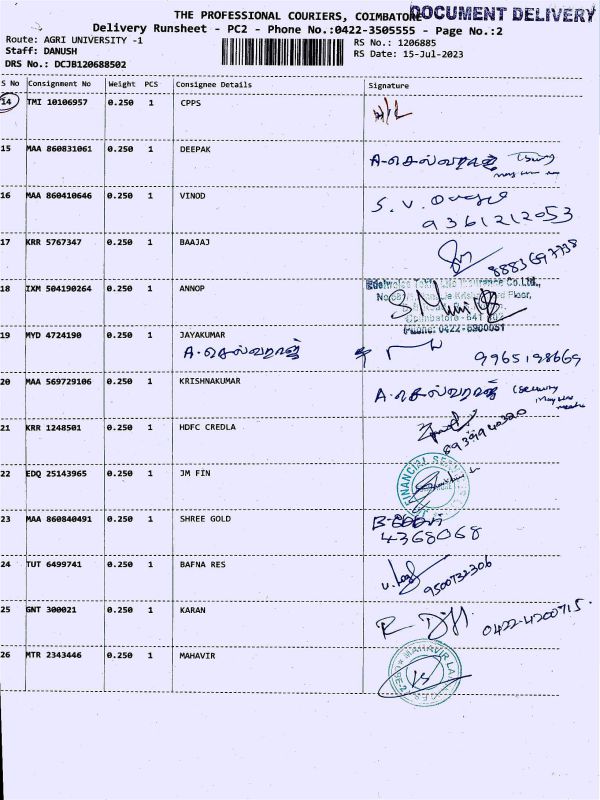 THE PROFESSIONAL COURIERS, COIMBATORE
DOCUMENT DELIVERY
Delivery Runsheet - PC2 - Phone No.:0422-3505555 - Page No.:2
Route: AGRI UNIVERSITY -1
RS No.: 1206885
Staff: DANUSH
RS Date: 15-Jul-2023
DRS No.: DCJB120688502
S No Consignment No Weight PCS Consignee Details Signature
14 TMI 10106957 0.250 1 CPPS
15 MAA 860831061 0.250 1 DEEPAK A-செல்வராஜ்
16 MAA 860410646 0.250 1 VINOD S. V.
9361212053
17 KRR 5767347 0.250 1 BAAJAJ 8883697738
18 IXM 504190264 0.250 1 ANNOP
Edelweiss Tokio Life Insurance Co.Ltd.,
Floor,
Coimbatore - 641
Phone: 0422-6900051
19 MYD 4724190 0.250 1 JAYAKUMAR
A-செல்வராஜ் 9965198669
20 MAA 569729106 0.250 1 KRISHNAKUMAR A-செல்வராஜ்
21 KRR 1248501 0.250 1 HDFC CREDLA 8939940320
22 EDQ 25143965 0.250 1 JM FIN FINANCIAL
23 MAA 860840491 0.250 1 SHREE GOLD
4368068
24 TUT 6499741 0.250 1 BAFNA RES 9500732306
25 GNT 300021 0.250 1 KARAN 0422-4200715
26 MTR 2343446 0.250 1 MAHAVIR MAHAVIR